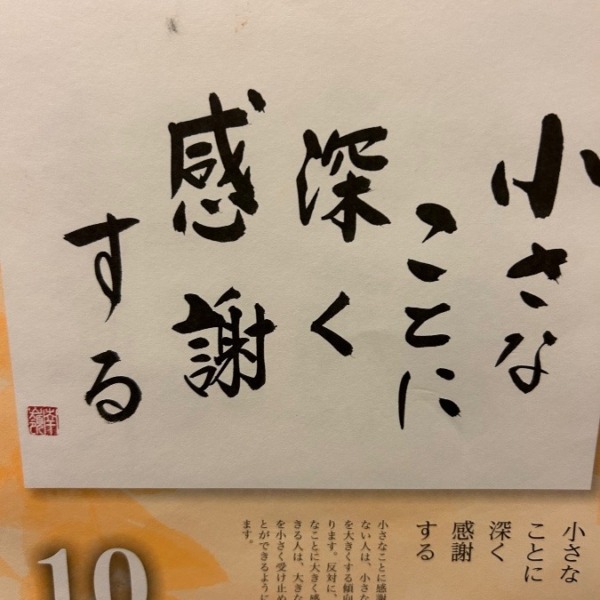 小さな
ことに
深く
感謝
する
小さな
ことに
深く
感謝
する
小さなことに感謝
ない人は、小さな
を大きくする傾向
ります。反対に、
なことに大きく感
きる人は、大きな
を小さく受け止め
とができるように
ます。
10